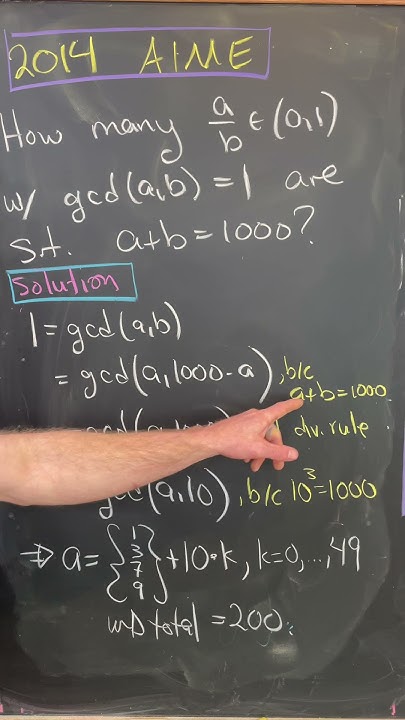 2014 AIME
How many a/b ∈ (0,1)
w/ gcd(a,b) = 1 are
s.t. a+b=1000?
Solution
1 = gcd(a,b)
= gcd(a,1000-a), b/c
a+b=1000.
div. rule
gcd(a,10), b/c 10³=1000
⇒ a = {1 3 7 9} + 10·k, k=0,...,49
total = 200.